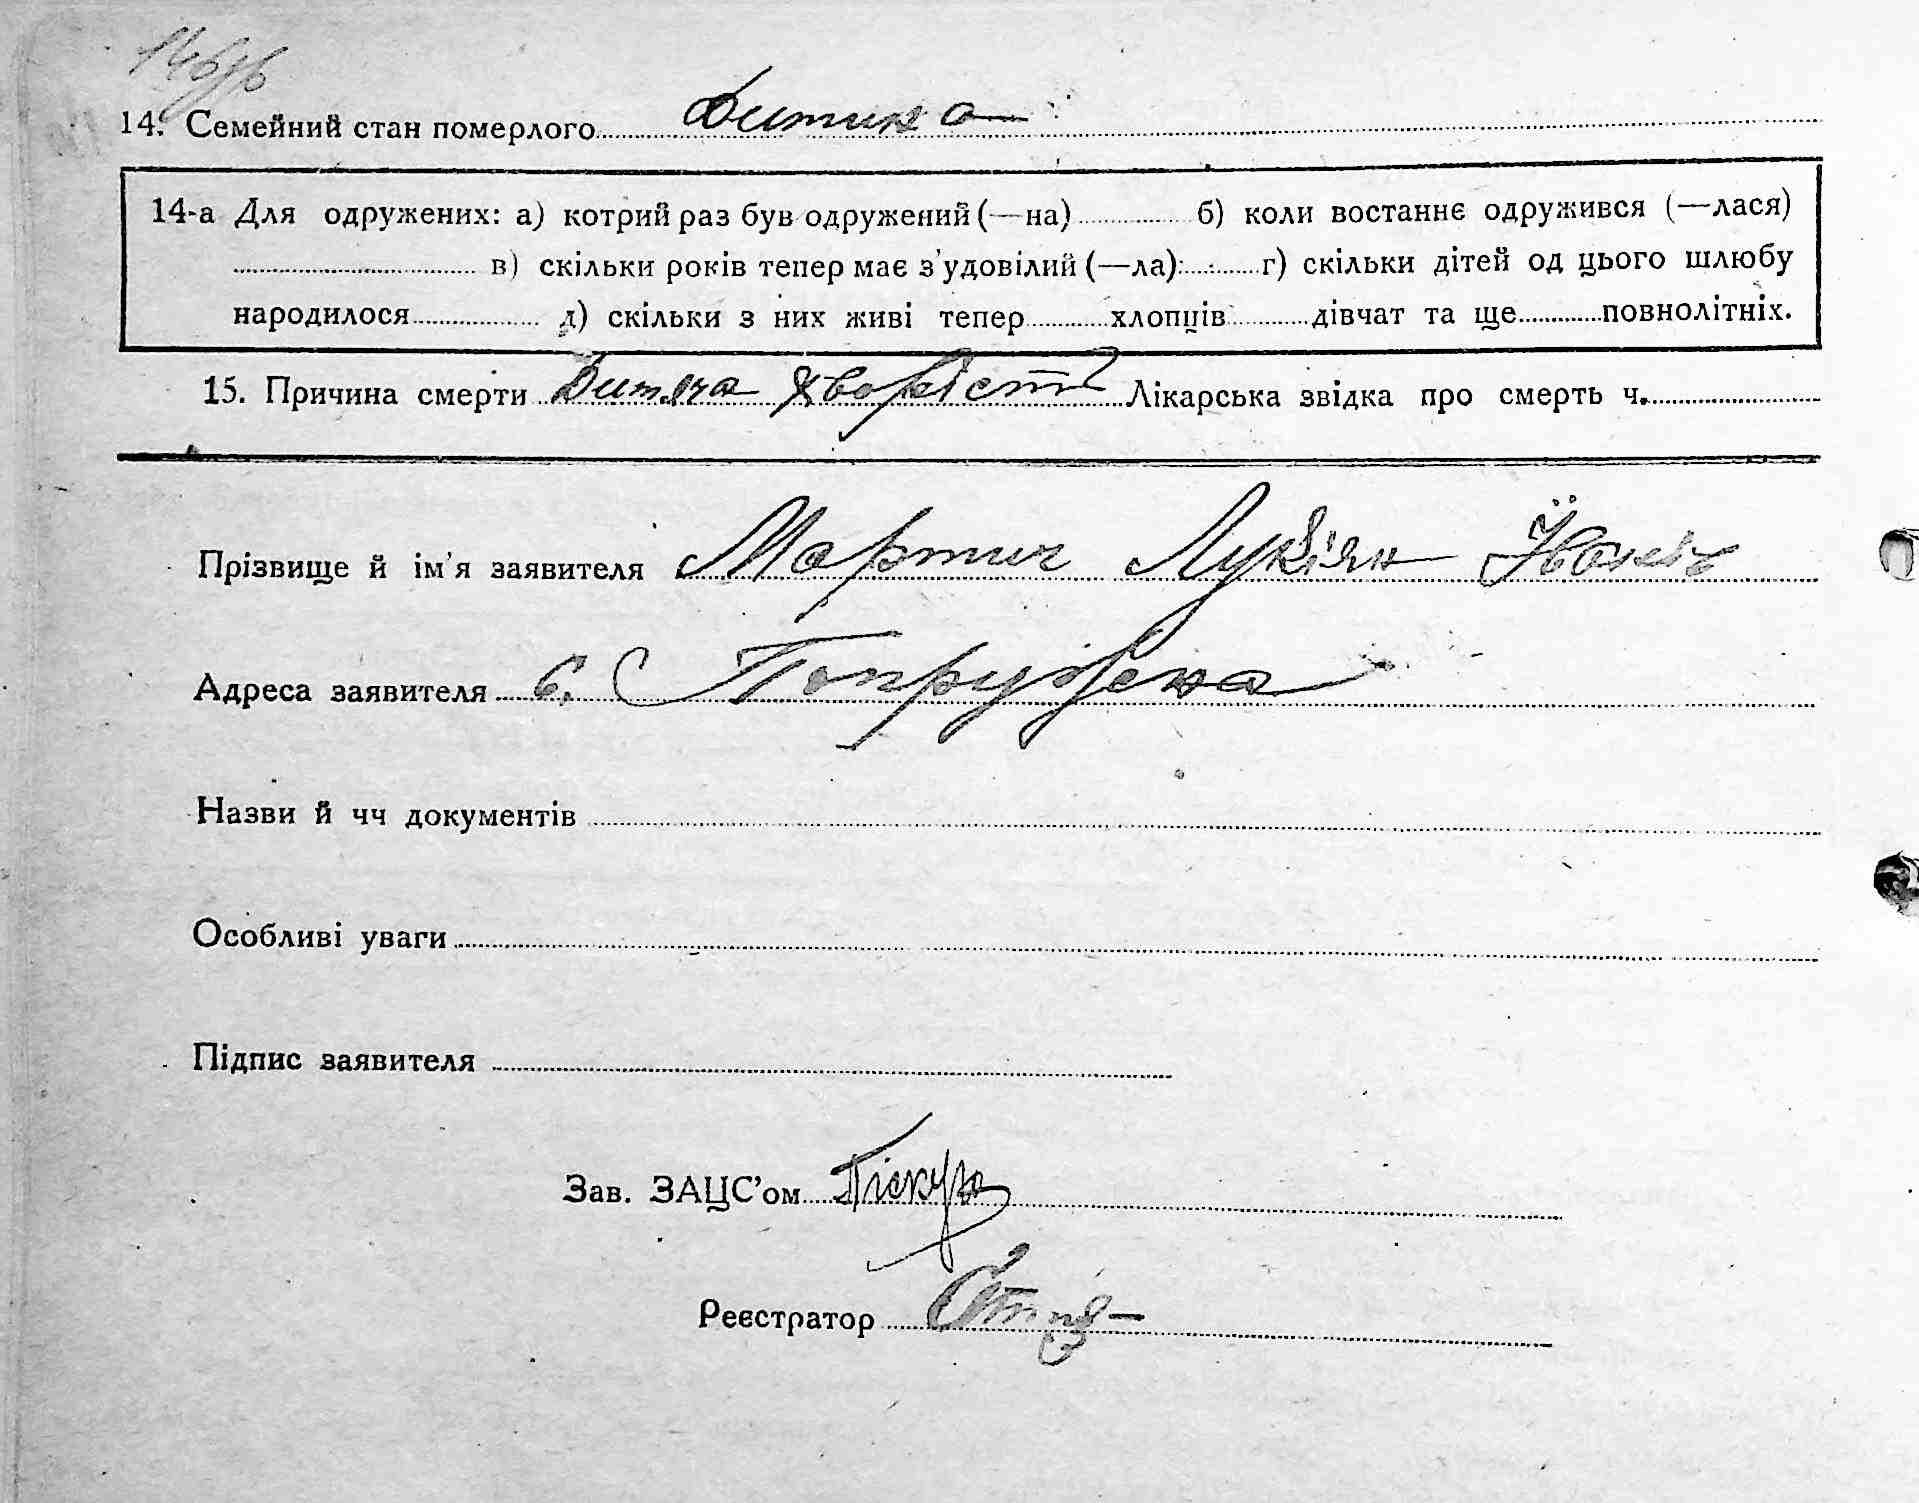 14. Семейний стан померлого Дитина
14-а Для одружених: а) котрий раз був одружений (—на) б) коли востаннє одружився (—лася)
в) скільки років тепер має з'удовілий (—ла): г) скільки дітей од цього шлюбу
народилося д) скільки з них живі тепер хлопців дівчат та ще повнолітніх.
15. Причина смерти Дитяча хворість Лікарська звідка про смерть ч.
Прізвище й ім'я заявителя Мартич Лукіян
Адреса заявителя с. Попружена
Назви й чч документів
Особливі уваги
Підпис заявителя
Зав. ЗАЦС'ом Піскун
Реєстратор